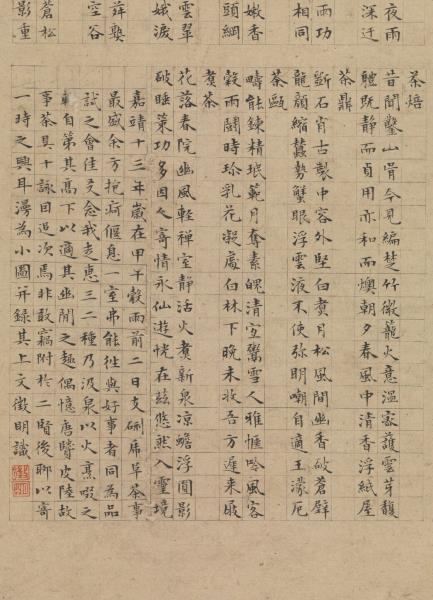 夜雨
深迂
雨功
相同
嫩香
頭綱
雲翠
娥淚
空谷
蒼松
影重
茶焙
昔聞鑿山骨今見編楚竹微籠火意溫密護雲芽馥
體既靜而貞用亦和而燠朝夕春風中清香浮紙屋
茶鼎
斲石肖古製中容外堅白煑月松風間幽香破蒼壁
龍顱縮蠢勢蟹眼浮雲液不使彌明嘲自適王濛厄
茶甌
疇能鍊精珉範月奪素魄清宜鬻雪人雅愜吟風客
穀雨鬪時珍乳花凝處白林下晚未收吾方遲來屐
煑茶
花落春院幽風輕禪室靜活火煑新泉凉蟾浮圓影
破睡策功多因人寄情永仙遊恍在茲悠然入靈境
嘉靖十三年歲在甲午穀雨前二日支硎虎阜茶事
最盛余方抱疴偃息一室弗能往與好事者同爲品
試之會佳友念我走惠三二種乃汲泉以火烹啜之
輒自第其高下以適其幽閒之趣偶憶唐賢皮陸故
事茶具十詠因追次焉非敢竊附於二賢後聊以寄
一時之興耳漫爲小圖并錄其上文徵明識